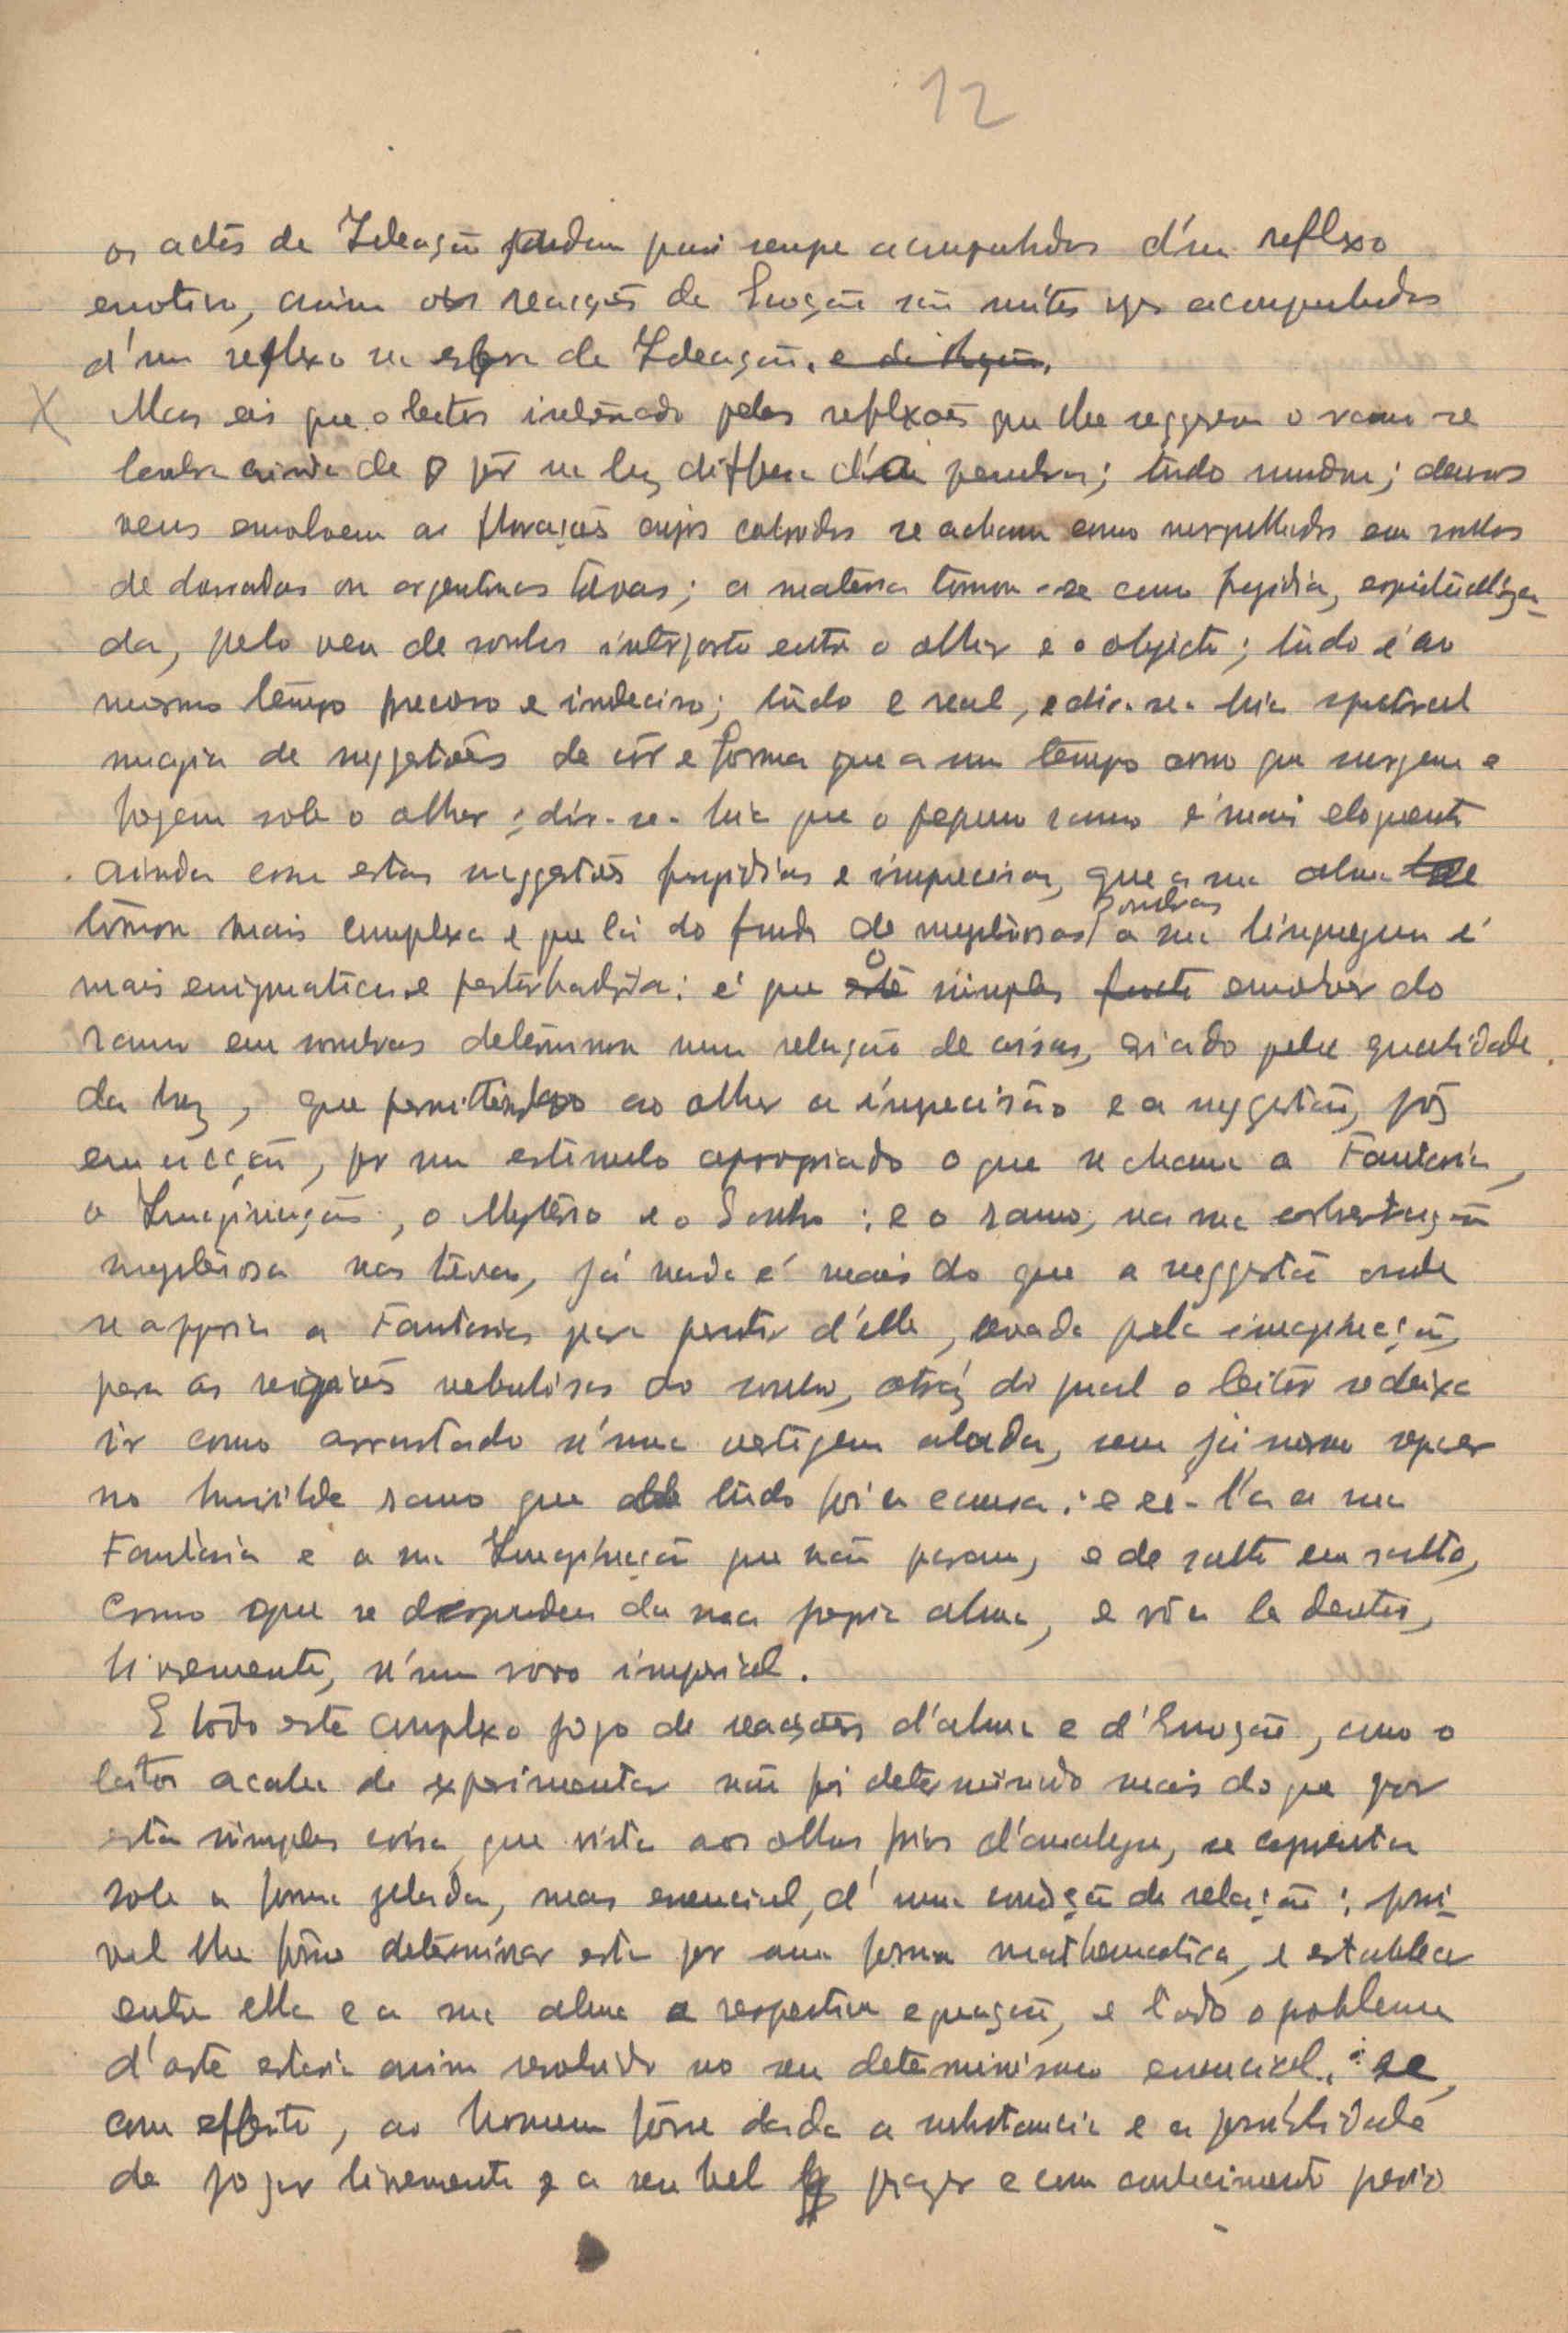 12
os actos de Ideação tendem pois sempre acompanhados d'um reflexo
emotivo, assim as reacções da Emoção são muitas vezes acompanhadas
d'um reflexo na esfera da Ideação.
X Mas eis que o leitor inclinado pelas reflexões que lhe suggerem o ramo se
lembra ainda de o pôr na luz diffusa d'uma penumbra; tudo mudou; densos
veus envolvem as florações cujos coloridos se acham como mergulhados em sonhos
de douradas ou argentinas trevas; a materia tornou-se como fugidia, espiritualiza-
da, pelo veu de sonho interposto entre o olhar e o objecto; tudo é ao
mesmo tempo preciso e indeciso; tudo é real, e dir-se-hia spectral
magia de suggestões de côr e forma que a um tempo como que surgem e
fogem sob o olhar; dir-se-hia que o pequeno ramo é mais eloquente
ainda com estas suggestões fugidias e imprecisas, que a sua alma se
tornou mais complexa e que lá do fundo de mysteriosas sombras a sua linguagem é
mais enigmatica e perturbadora: é que o simples envolver do
ramo em sombras determinou uma relação de coisas, criado pela qualidade
da luz, que permittindo ao olhar a imprecisão e a suggestão, pôz
em acção, por um estimulo apropriado o que se chama a Fantasia,
a Imaginação, o Mysterio e o Sonho: e o ramo, na sua
mysteriosa nas trevas, já nada é mais do que a suggestão onde
se appoia a Fantasia para partir d'elle, levada pela imaginação,
para as regiões nebulosas do sonho, atráz do qual o leitor se deixa
ir como arrastado n'uma vertigem alada, sem já mesmo
no humilde ramo que de tudo foi a causa: e ei-l'a a sua
Fantasia e a sua Imaginação que não param, e de salto em salto,
como que se desprendem da sua propria alma, e vôa la dentro,
livremente, n'um vôo imperial.
E todo este complexo jogo de reacções d'alma e d'Emoção, como o
leitor acaba de experimentar não foi determinado mais do que por
esta simples coisa que vista aos olhos frios d'analyse, se apresenta
sob a forma gelada, mas essencial, d'uma condição de relação: possi-
vel lhe fôsse determinar esta por uma forma mathematica, e estabelecer
entre ella e a sua alma a respectiva equação, e todo o problema
d'arte estaria assim resolvido no seu determinismo essencial: se,
com effeito, ao homem fôsse dada a substancia e a possibilidade
de jogar livremente e a seu bel prazer e com conhecimento previo